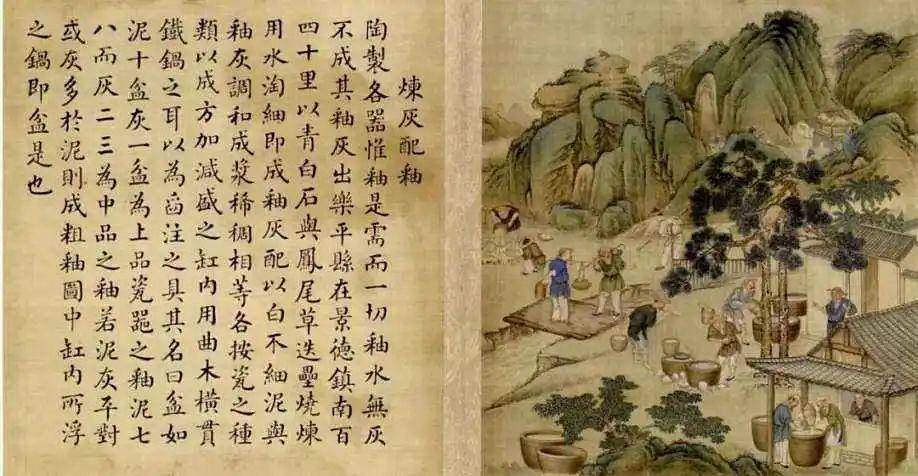 煉灰配釉
陶製各器惟釉是需而一切釉水無灰
不成其釉灰出樂平縣在景德鎮南百
四十里以青白石與鳳尾草迭壘燒煉
用水淘細即成釉灰配以白不細泥與
釉灰調和成漿稀稠相等各按瓷之種
類以成方加減盛之缸內用曲木橫貫
鐵鍋之耳以為舀注之具其名曰盆如
泥十盆灰一盆為上品瓷噐之釉泥七
八而灰二三為中品之釉若泥灰平對
或灰多於泥則成粗釉圖中缸內所浮
之鍋即盆是也